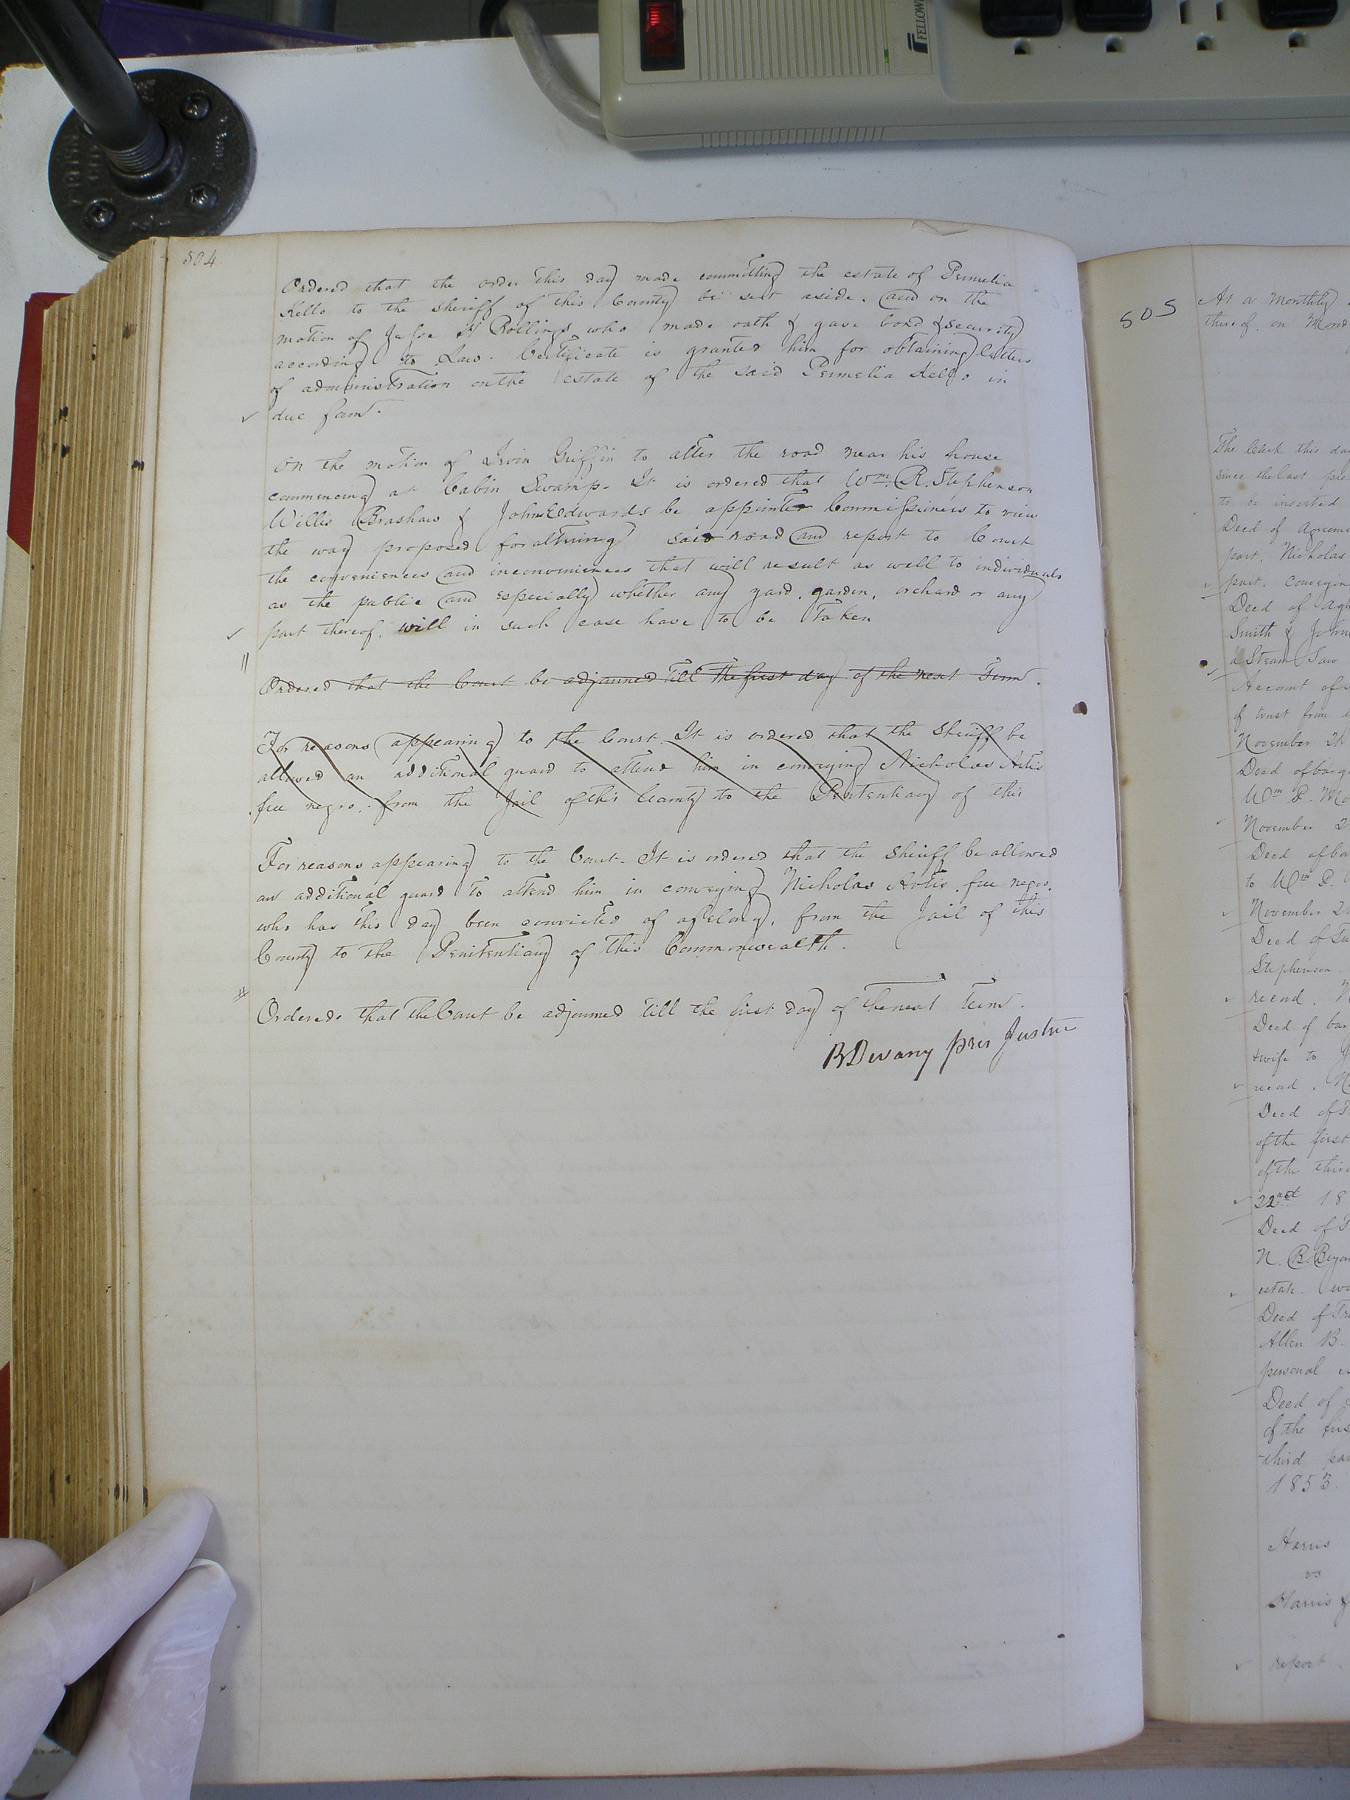 FELLOWES
504.
Ordered that the order this day made committing the estate of Permelia
Kello to the Sheriff of this County be set aside. and on the
motion of Jesse H Rollings who made oath & gave bond & security
according to Law. Certificate is granted him for obtaining letters
of administration on the estate of the said Permelia Kello in
due form.
On the motion of Irvin Griffin to alter the road near his house
commencing at Cabin Swamp. It is ordered that Wm. R. Stephenson
Willis Brashaw & John Edwards be appointed Commissioners to view
the way proposed for altering said road and report to Court
the conveniences and inconveniences that will result as well to individuals
as the public and especially whether any yard, garden, orchard or any
part thereof, will in such case have to be taken
Ordered that the Court be adjourned till the first day of the next Term.
For reasons appearing to the Court. It is ordered that the Sheriff be
allowed an additional guard to attend him in conveying Nicholas Artis
free negro. from the Jail of this County to the Penitentiary of this
For reasons appearing to the Court. It is ordered that the Sheriff be allowed
an additional guard to attend him in conveying Nicholas Artis free negro.
who has this day been convicted of a felony, from the Jail of this
County to the Penitentiary of this Commonwealth.
Ordered that the Court be adjourned till the first day of the next Term.
B Devany pres Justice
505
At a Monthly
thereof. on
The Clerk this da
since the last
to be inserted
Deed of
part. Nicholas
part. conveyin
Deed of
Smith & John
a Steam Saw
Account of
of trust from
November 2
Deed of barg
Wm P.
November 2
Deed of ba
to Wm P.
November 2
Deed of
Stephenson
record.
Deed of bar
& wife to
record.
Deed of
of the first
of the thir
22nd 18
Deed of
N. B.
estate.
Deed of Tr
Allen B.
personal
Deed of
of the firs
third pa
1853.
Harris
vs
Harris &
report